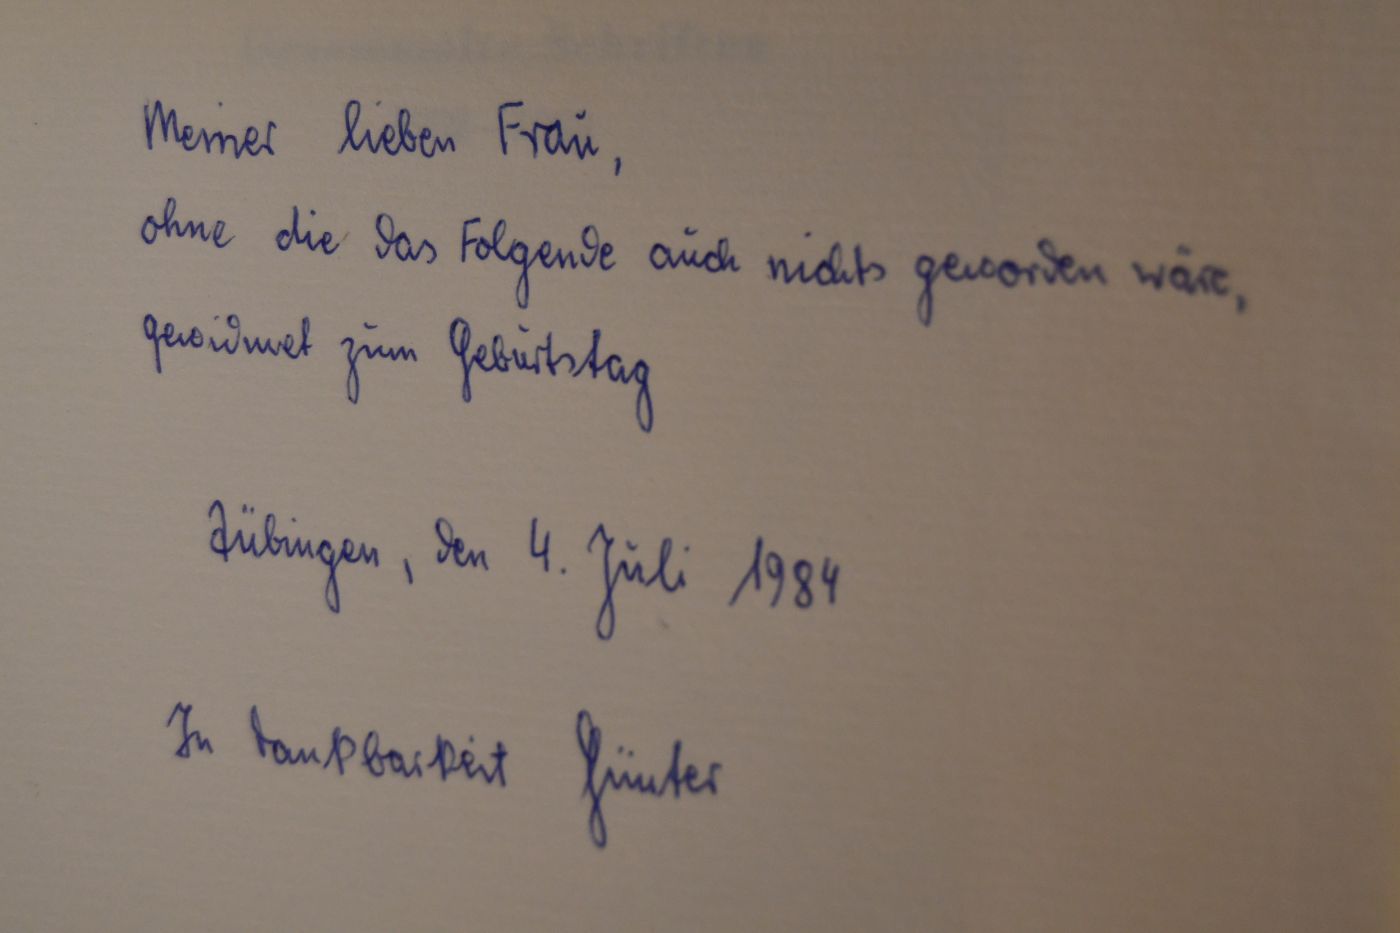 Meiner lieben Frau,
ohne die das Folgende auch nichts geworden wäre,
gewidmet zum Geburtstag
Tübingen, den 4. Juli 1984
In Dankbarkeit Günter